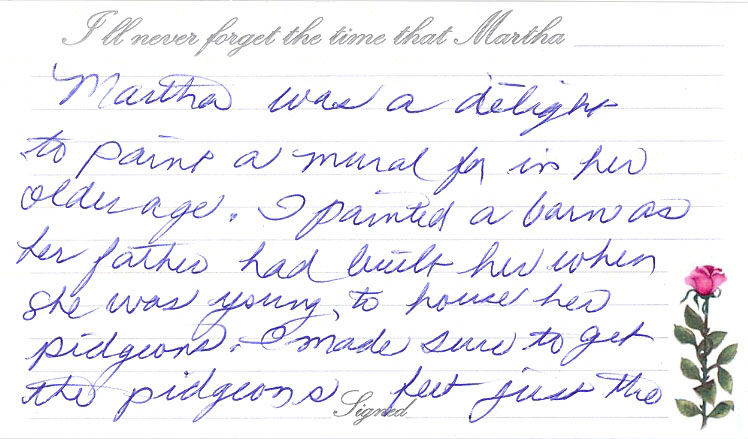 I'll never forget the time that Martha
Martha was a delight
to paint a mural for in her
older age. I painted a barn as
her father had built her when
she was young, to house her
pidgeons. I made sure to get
the pidgeons feet just the
Signed